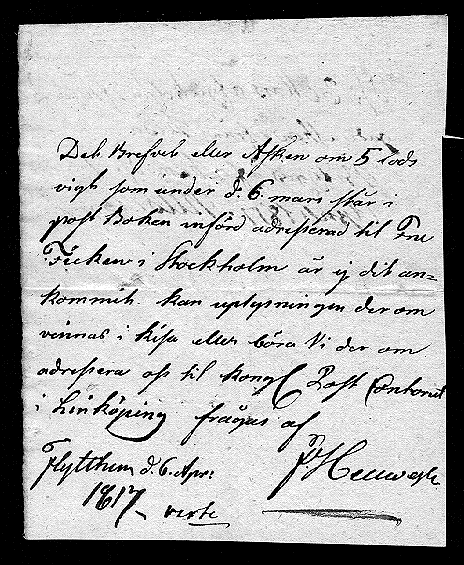 Det Brefvet eller Asken om 5 lods
vigt som under d. 6. mars står i
post Boken införd adresserad til Fru
i Stockholm är ej dit an-
kommit kan uplysningen der om
vinnas i Kisa eller böra Vi der om
adressera oss til Kongl Post Contoret
i Linköping frågas af
d. 6. Apr:
1817 verte